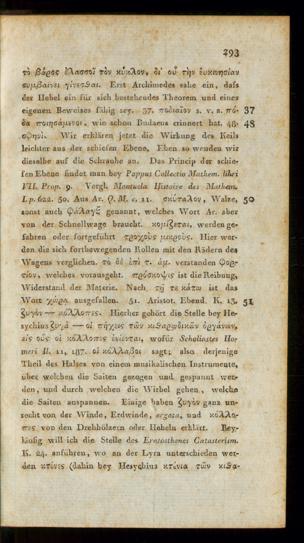 393
τὸ βάρος ἐλασσοῖ τὸν κύκλον, δι' οὗ τὴν εὐκινησίαν
συμβαίνει γίνεσθαι. Erst Archimedes sahe ein, daſs
der Hebel ein für sich bestehendes Theorem und eines
eigenen Beweises fähig sey. 37. ποδιαῖον s. v. a. πό-
δα ποιησάμενοι, wie schon Budaeus erinnert hat. 48.
σφηνί. Wir erklären jetzt die Wirkung des Keils
leichter aus der schiefen Ebene. Eben so wenden wir
dieselbe auf die Schraube an. Das Princip der schie-
fen Ebene findet man bey Pappus Collectio Mathem. libri
VII. Prop. 9. Vergl. Montucla Histoire des Mathem.
I. p. 622. 50. Aus Ar. Q. M. c. 11. σκύταλον, Walze,
sonst auch φάλαγξ genannt, welches Wort Ar. aber
von der Schnellwage braucht. κομίζεται, werden ge-
fahren oder fortgeführt τροχοὺς μικρούς. Hier wer-
den die sich fortbewegenden Rollen mit den Rädern des
Wagens verglichen. τὸ δὲ ἐπὶ τ. ἁμ. verstanden φορ-
τίον, welches vorausgeht. πρόσκοψις ist die Reibung,
Widerstand der Materie. Nach τῇ τε κάτω ist das
Wort χώρα ausgefallen. 51. Aristot. Ebend. K. 13.
ζυγὸν — κόλλοπες. Hierher gehört die Stelle bey He-
sychius ζυγὰ — οἱ πήχεις τῶν κιθαρωδικῶν ὀργάνων,
εἰς οὓς οἱ κόλλοπες ἐνίενται, wofür Scholiastes Ho-
meri Il. 11, 187. οἱ κόλλαβοι sagt; also derjenige
Theil des Halses von einem musikalischen Instrumente,
über welchen die Saiten gezogen und gespannt wer-
den, und durch welchen die Wirbel gehen, welche
die Saiten ausspannen. Einige haben ζυγὸν ganz un-
recht von der Winde, Erdwinde, ergata, und κόλλο-
πες von den Drehhölzern oder Hebeln erklärt. Bey-
läufig will ich die Stelle des Eratosthenes Catasterism.
K. 24. anführen, wo an der Lyra unterschieden wer-
den κτένες (dahin bey Hesychius κτένια τῶν κιθα-
37
48
50
51